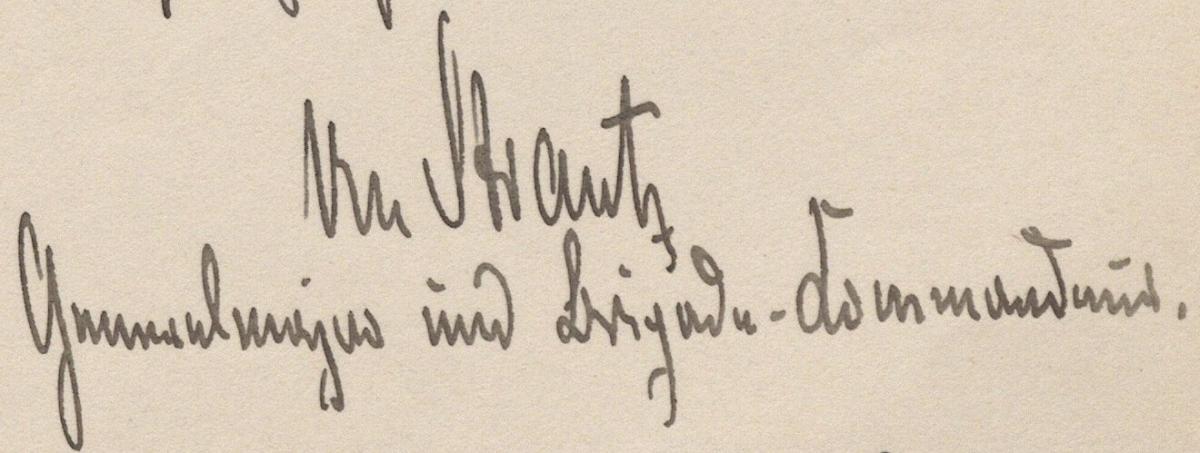 von Strantz
Generalmajor und Brigade-Kommandeur.